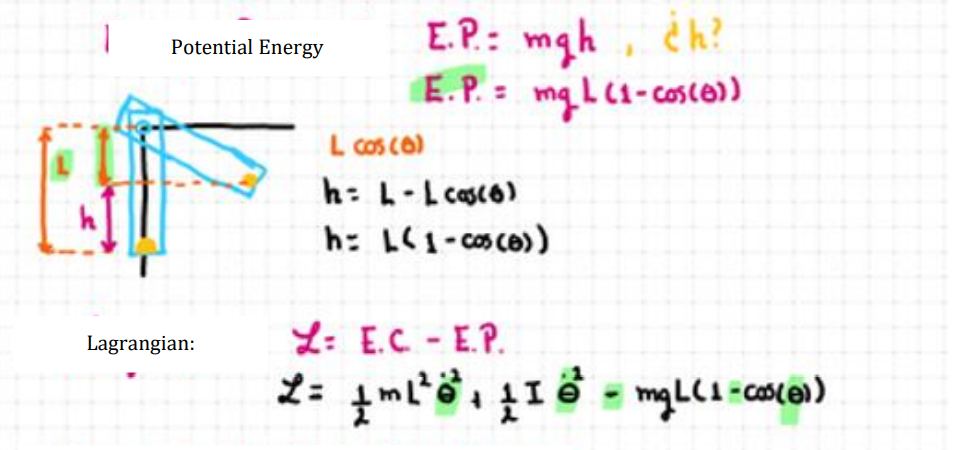 Potential Energy
E.P. = mgh , ¿h?
E.P. = mgL(1-cos(θ))
L
h
L cos(θ)
h = L - L cos(θ)
h = L(1 - cos(θ))
Lagrangian:
ℒ = E.C. - E.P.
ℒ = 1/2 mL² θ̇² + 1/2 I θ̇² - mgL(1-cos(θ))